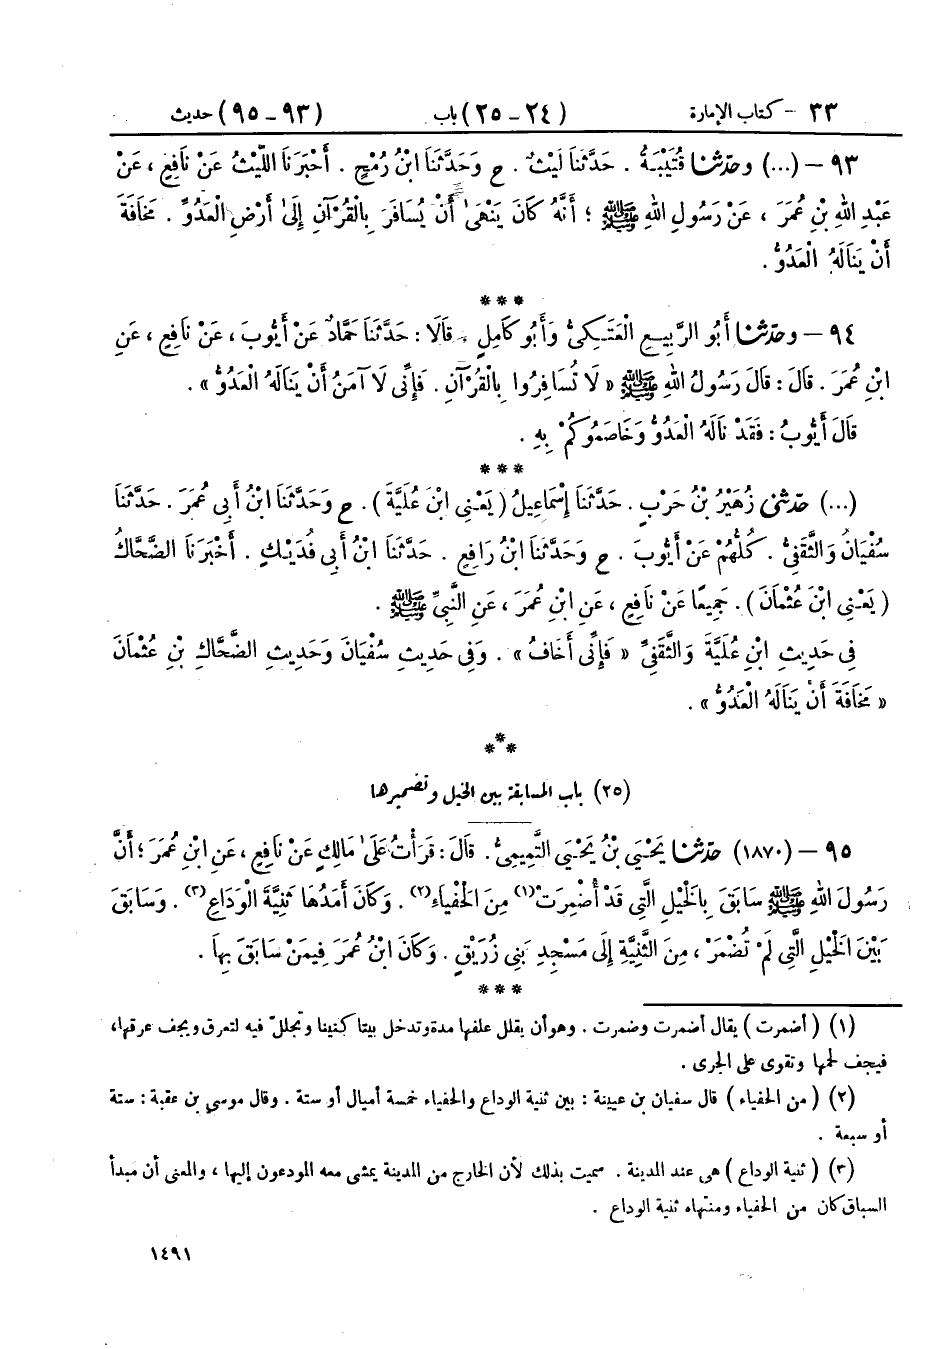 ٣٣ - كتاب الإمارة (٢٤ - ٢٥) باب (٩٣ - ٩٥) حديث
٩٣ – (...) وحدّثنا قُتَيْبَةُ . حَدَّثَنَا لَيْثٌ . ح وَحَدَّثَنَا ابْنُ رُمْحٍ . أَخْبَرَنَا اللَّيْثُ عَنْ نَافِعٍ ، عَنْ
عَبْدِ اللهِ بْنِ عُمَرَ ، عَنْ رَسُولِ اللهِ ﷺ ؛ أَنَّهُ كَانَ يَنْهَىٰ أَنْ يُسَافَرَ بِالْقُرْآنِ إِلَىٰ أَرْضِ الْعَدُوِّ . مَخَافَةَ
أَنْ يَنَالَهُ الْعَدُوُّ .
***
٩٤ – وحدّثنا أَبُو الرَّبِيعِ الْعَتَكِيُّ وَأَبُو كَامِلٍ . قَالَا : حَدَّثَنَا حَمَّادٌ عَنْ أَيُّوبَ ، عَنْ نَافِعٍ ، عَنِ
ابْنِ عُمَرَ . قَالَ : قَالَ رَسُولُ اللهِ ﷺ « لَا تُسَافِرُوا بِالْقُرْآنِ . فَإِنِّي لَا آمَنُ أَنْ يَنَالَهُ الْعَدُوُّ » .
قَالَ أَيُّوبُ : فَقَدْ نَالَهُ الْعَدُوُّ وَخَاصَمُوكُمْ بِهِ .
***
(...) حدّثني زُهَيْرُ بْنُ حَرْبٍ . حَدَّثَنَا إِسْمَاعِيلُ ( يَعْنِي ابْنَ عُلَيَّةَ ) . ح وَحَدَّثَنَا ابْنُ أَبِي عُمَرَ . حَدَّثَنَا
سُفْيَانُ وَالثَّقَفِيُّ . كُلُّهُمْ عَنْ أَيُّوبَ . ح وَحَدَّثَنَا ابْنُ رَافِعٍ . حَدَّثَنَا ابْنُ أَبِي فُدَيْكٍ . أَخْبَرَنَا الضَّحَّاكُ
( يَعْنِي ابْنَ عُثْمَانَ ) . جَمِيعًا عَنْ نَافِعٍ ، عَنِ ابْنِ عُمَرَ ، عَنِ النَّبِيِّ ﷺ .
فِي حَدِيثِ ابْنِ عُلَيَّةَ وَالثَّقَفِيِّ « فَإِنِّي أَخَافُ » . وَفِي حَدِيثِ سُفْيَانَ وَحَدِيثِ الضَّحَّاكِ بْنِ عُثْمَانَ
« مَخَافَةَ أَنْ يَنَالَهُ الْعَدُوُّ » .
***
(٢٥) باب المسابقة بين الخيل وتضميرها
٩٥ – (١٨٧٠) حدّثنا يَحْيَىٰ بْنُ يَحْيَىٰ التَّمِيمِيُّ . قَالَ : قَرَأْتُ عَلَىٰ مَالِكٍ عَنْ نَافِعٍ ، عَنِ ابْنِ عُمَرَ ؛ أَنَّ
رَسُولَ اللهِ ﷺ سَابَقَ بِالْخَيْلِ الَّتِي قَدْ أُضْمِرَتْ(١) مِنَ الْحَفْيَاءِ(٢) . وَكَانَ أَمَدُهَا ثَنِيَّةَ الْوَدَاعِ(٣) . وَسَابَقَ
بَيْنَ الْخَيْلِ الَّتِي لَمْ تُضْمَرْ ، مِنَ الثَّنِيَّةِ إِلَى مَسْجِدِ بَنِي زُرَيْقٍ . وَكَانَ ابْنُ عُمَرَ فِيمَنْ سَابَقَ بِهَا .
***
(١) ( أضمرت ) يقال أضمرت وضمرت . وهو أن يقلل علفها مدة وتدخل بيتا كنينا وتجلل فيه لتعرق ويجف عرقها ،
فيجف لحمها وتقوى على الجرى .
(٢) ( من الحفياء ) قال سفيان بن عيينة : بين ثنية الوداع والحفياء خمسة أميال أو ستة . وقال موسى بن عقبة : ستة
أو سبعة .
(٣) ( ثنية الوداع ) هى عند المدينة . سميت بذلك لأن الخارج من المدينة يمشى معه المودعون إليها ، والمعنى أن مبدأ
السباق كان من الحفياء ومنتهاه ثنية الوداع .
١٤٩١